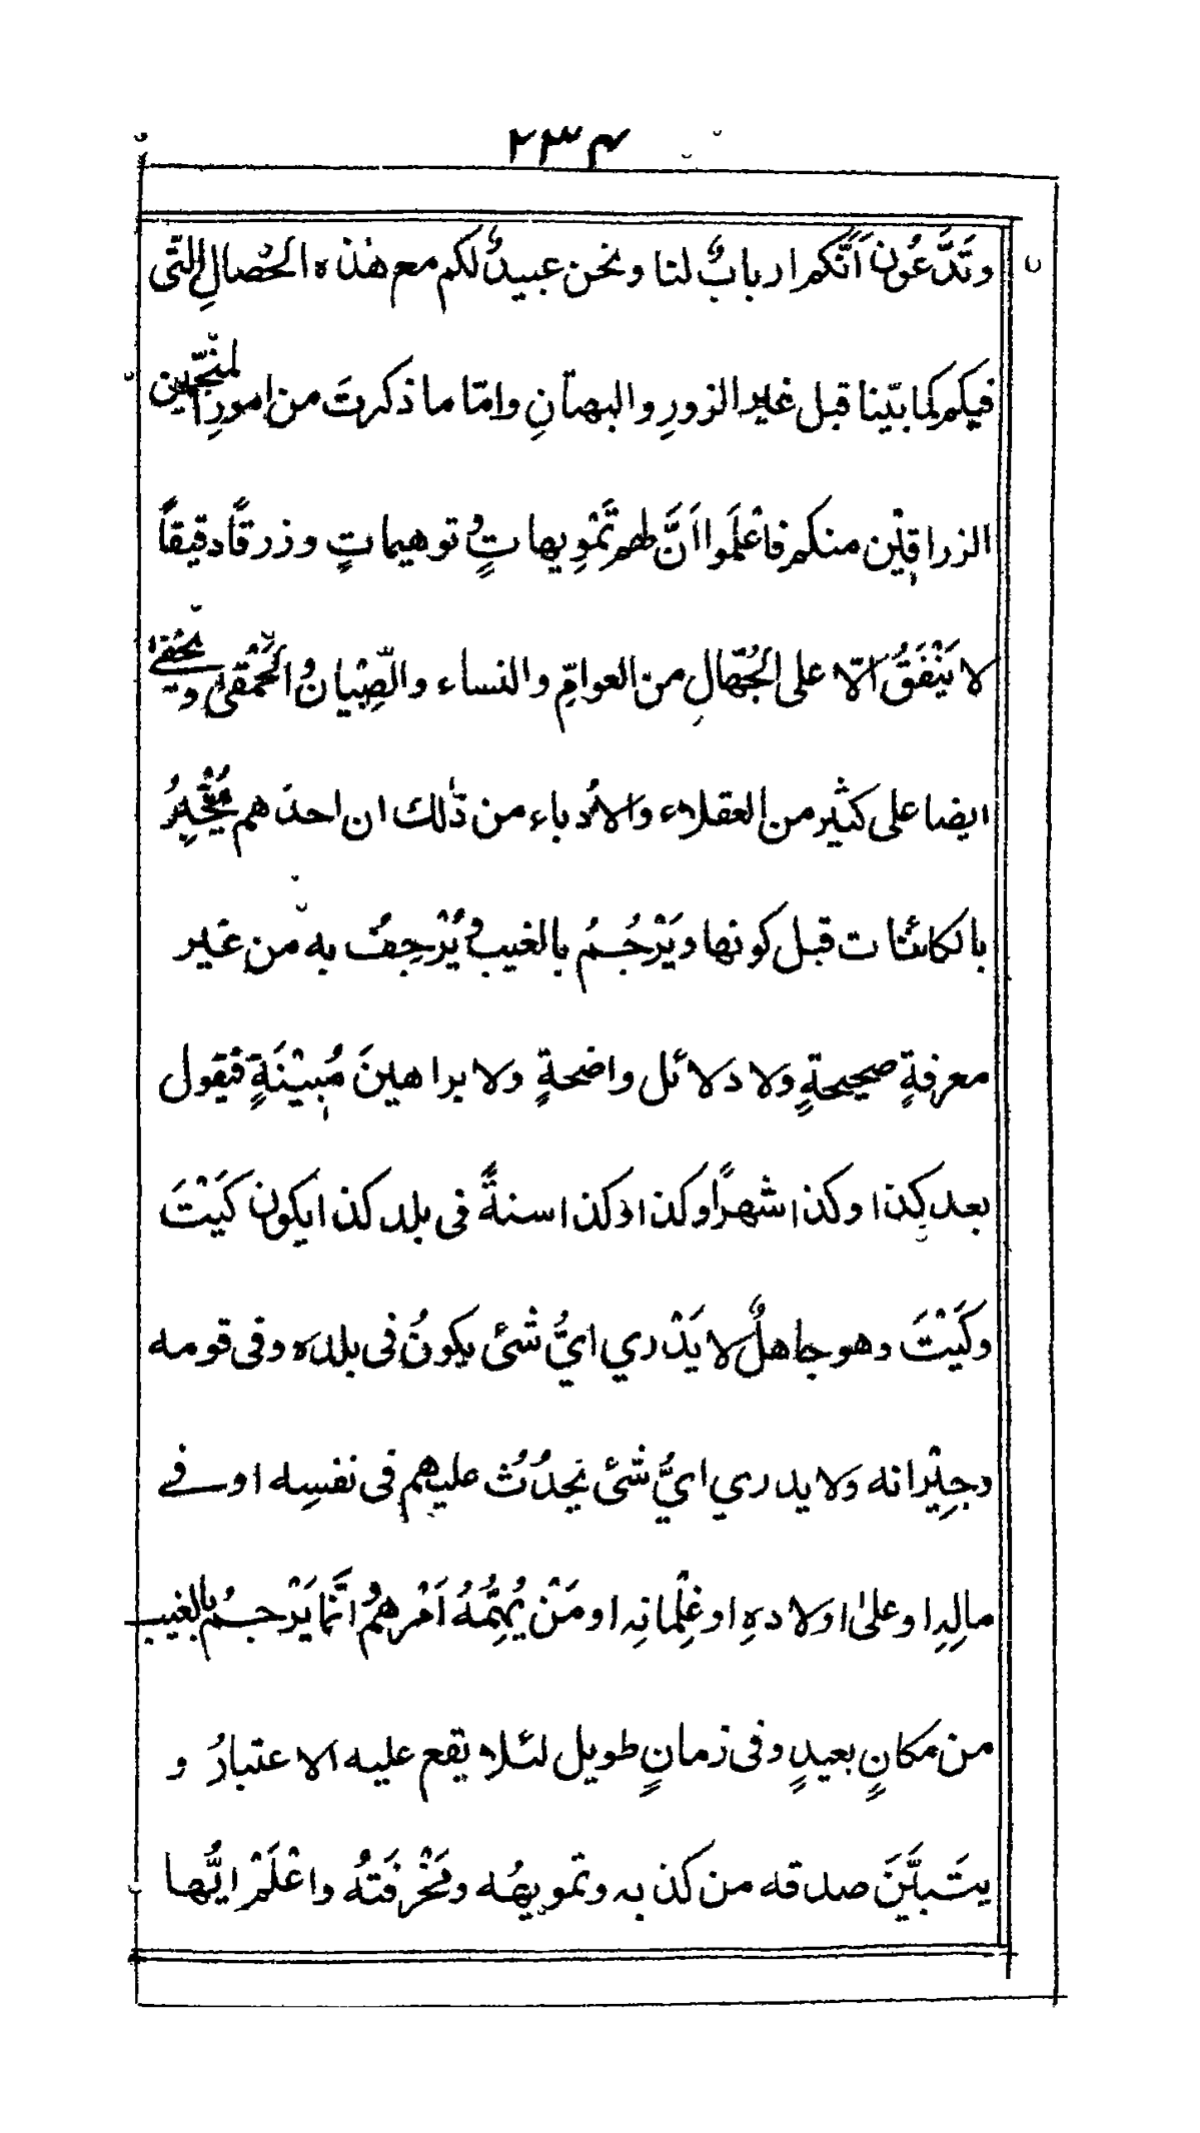 ٢٣٤
وتَدَّعُون اَنَّكم اربابٌ لنا ونحن عبيدٌ لكم مع هٰذه الخصالِ التّى
فيكم كما بيّنا قبل غير الزورِ والبهتانِ وامّا ما ذكرتَ من امورِ المنجّمين
الزراقِيْن منكم فاعْلَموا اَنَّ لهم تَمْوِيهاتٍ و توهيماتٍ وزرقًا دقيقاً
لا يَنْفَقُ الّا على الجُهّالِ من العوامِّ والنساء والصِّبْيانُ والحَمْقىٰ ويخفےٰ
ايضا على كثير من العقلاء والاُدباء من ذٰلك ان احدَهم يُخْبِرُ
بالكائنات قبل كونها ويَرْجُمُ بالغيب و يُرْجِفُ به من غير
معرفةٍ صحيحةٍ ولا دلائل واضحةٍ ولا براهينَ مُبِيْنَةٍ فيقول
بعد كذا وكذا شهرًا وكذا وكذا سنةً فى بلد كذا يكون كَيْتَ
وكَيْتَ وهو جاهلٌ لا يَدْري ايُّ شئ يكونُ فى بلده وفى قومه
وجِيْرانه ولا يدري ايُّ شئ يَحدُثُ عليهم فى نفسِه او فے
مالِه او علىٰ اولادهِ او غِلْمانِه او مَنْ يُهِمُّهُ اَمْرهمُ و انَّما يَرْجُمُ بالغيب
من مكانٍ بعيدٍ وفى زمانٍ طويل لئلا يقع عليه الاعتبارُ و
يتَبيَّنَ صدقه من كذبه وتمويهُه ومَخْرَفَتُه واعْلَمْ ايُّها